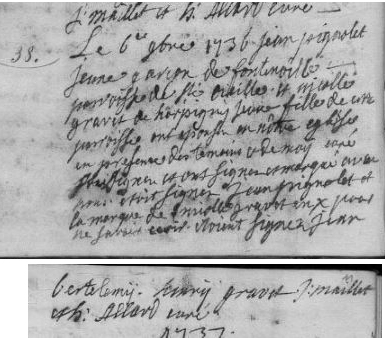 J. maillet et h. Allard curé
38.
Le 6e 9bre 1736 jean pignolet
jeune garçon de fontenoille
parroisse de Ste Cecille et nicolle
gravet de jeune fille de cette
parroisse ont epousé en nôtre eglise
en presence des temoins et de moy curé
soussignez et ont signez et marqué avec
nous étoit signez Jean pignolet et
la marque de nicolle gravet aux pour
ne savoir ecrir étoient signez Jean
bertelemy. henry gravet J. maillet
et h. Allard curé
1737.